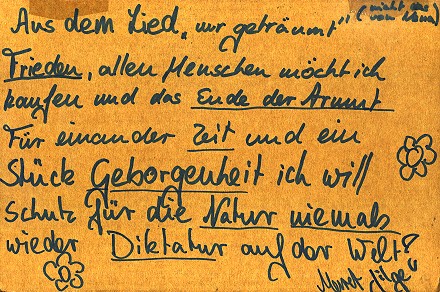 Aus dem Lied „nur geträumt"
Frieden, allen Menschen möcht ich
kaufen und das Ende der Armut
Für einander Zeit und ein
Stück Geborgenheit ich will
Schutz für die Natur niemals
wieder Diktatur auf der Welt?